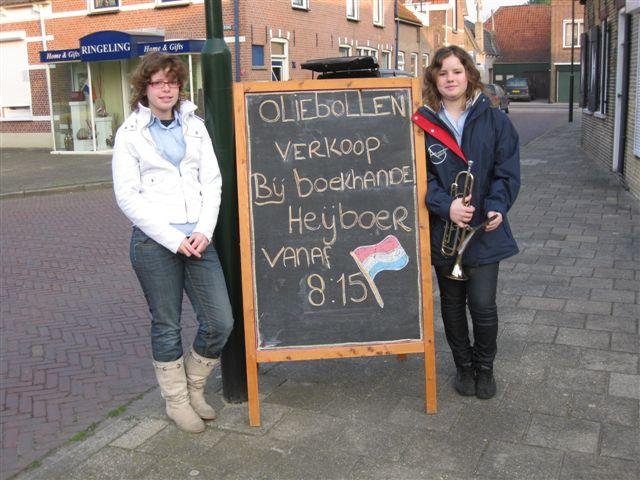 Home & Gifts RINGELING Home & Gifts
OLIEBOLLEN
VERKOOP
Bij BOEKHANDE
Heijboer
VANAF
8:15